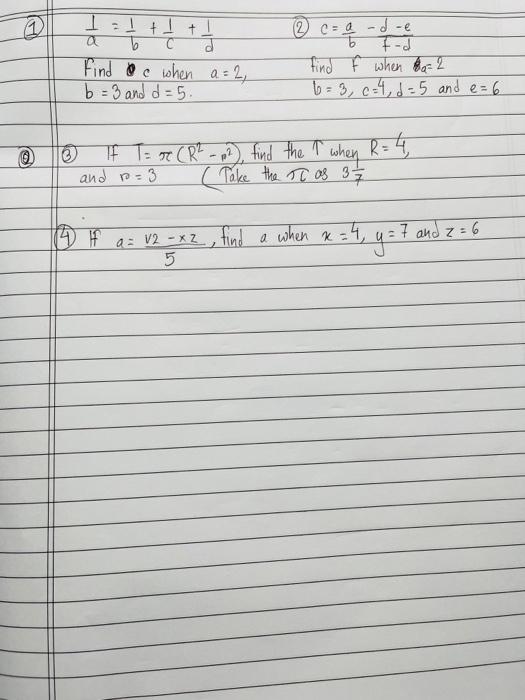 ① 1/a = 1/b + 1/c + 1/d
Find c when a = 2,
b = 3 and d = 5.
② c = a/b - d - e/f - d
find f when a = 2
b = 3, c = 4, d = 5 and e = 6
③ If T = π (R² - r²), find the T when R = 4,
and r = 3 (Take the π as 3 1/7
④ If a = √2 - xz/5, find a when x = 4, y = 7 and z = 6